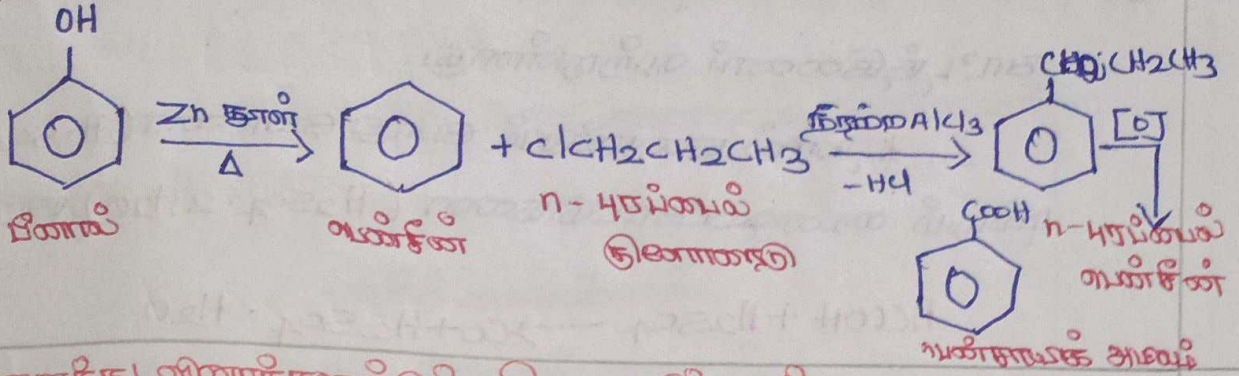 OH
Zn தூள்
Δ
+ ClCH2CH2CH3
நீரற்ற AlCl3
-HCl
CH2CH2CH3
[O]
பீனால்
பென்சீன்
n-புரப்பைல்
குளோரைடு
n-புரப்பைல்
பென்சீன்
COOH
பென்சாயிக் அமிலம்